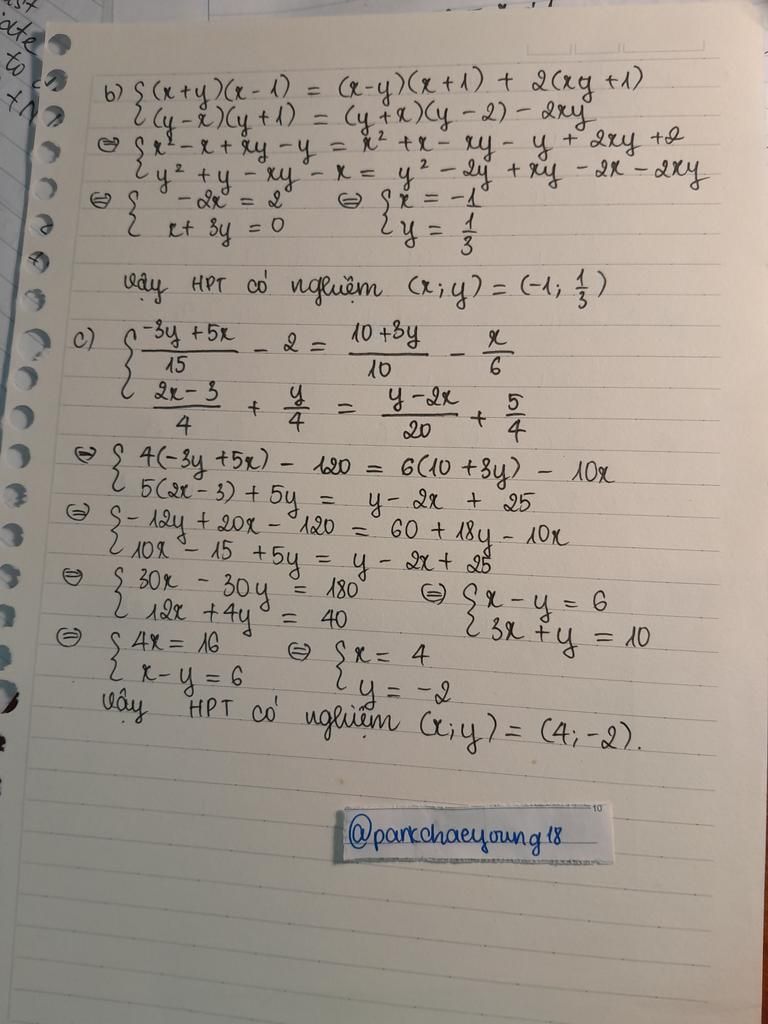 ate
to
b) { (x+y)(x-1) = (x-y)(x+1) + 2(xy+1)
(y-x)(y+1) = (y+x)(y-2) - 2xy
⇔ { x² - x + xy - y = x² + x - xy - y + 2xy + 2
y² + y - xy - x = y² - 2y + xy - 2x - 2xy
⇔ { -2x = 2 ⇔ { x = -1
x + 3y = 0 y = 1/3
Vậy HPT có nghiệm (x;y) = (-1; 1/3)
c) { (-3y+5x)/15 - 2 = (10+3y)/10 - x/6
(2x-3)/4 + y/4 = (y-2x)/20 + 5/4
⇔ { 4(-3y+5x) - 120 = 6(10+3y) - 10x
5(2x-3) + 5y = y - 2x + 25
⇔ { -12y + 20x - 120 = 60 + 18y - 10x
10x - 15 + 5y = y - 2x + 25
⇔ { 30x - 30y = 180 ⇔ { x - y = 6
12x + 4y = 40 3x + y = 10
⇔ { 4x = 16 ⇔ { x = 4
x - y = 6 y = -2
Vậy HPT có nghiệm (x;y) = (4;-2).
10
@parkchaeyoung18